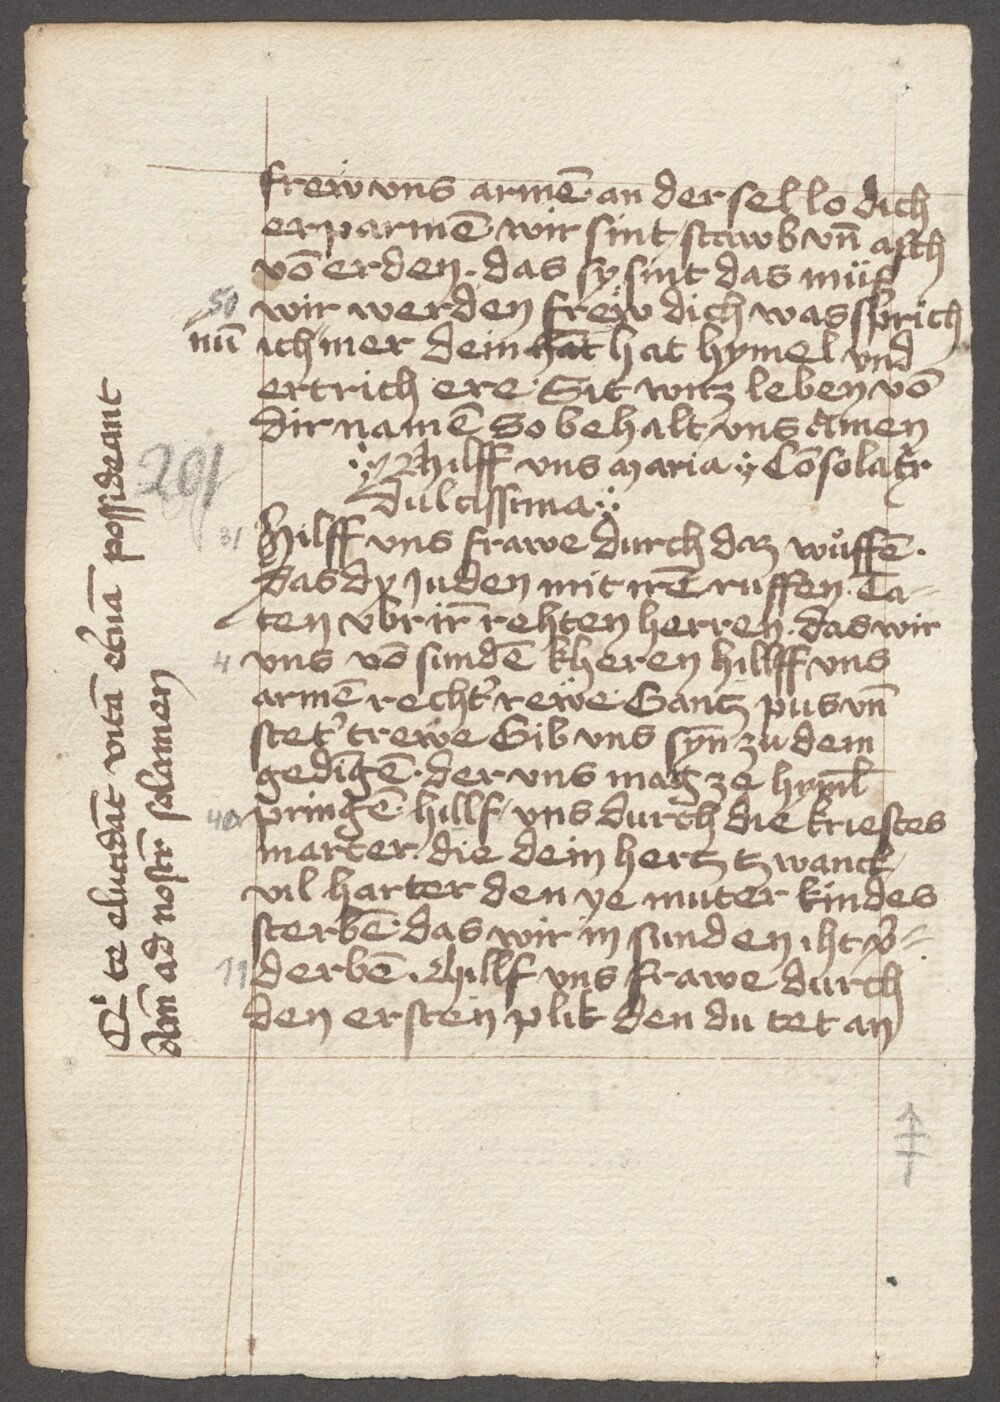 frew vns armē an der sel lo dich
erparmē wir sint stawb vn̄ asch
võ erden. das sy sint das müs
50 wir werden frew dich was sprich
nū ich mer dein hat hymel vnd
ertrich ere Sit wir leben võ
dir namē So behalt vns Amen
hilff vns maria Cōsolatr̄
dulcissima
201
31 Hilff vns frawe durch daz wůffē.
das dy Juden mit irē ruffen. Ta-
ten vbr ir̄ rehten herren. das wir
4 vns võ sundē kheren hillff vns
armē recht' rewe Gantz pus vn̄
stet' trewe Gib vns syn̄ zu dem
gedingē. der vns mag ze hyml̄
40 pringē hillf vns durch die kriestes
marter. die dein hertz tzwanck
vil harter den ye muter kindes
sterbē das wir in sunden iht v̄-
11 derbē. Hillf vns frawe durch
den ersten plik den du tet an
Qi te elucidāt vitā et̄nā possideant
Am̄ ad nostr̄ solamen